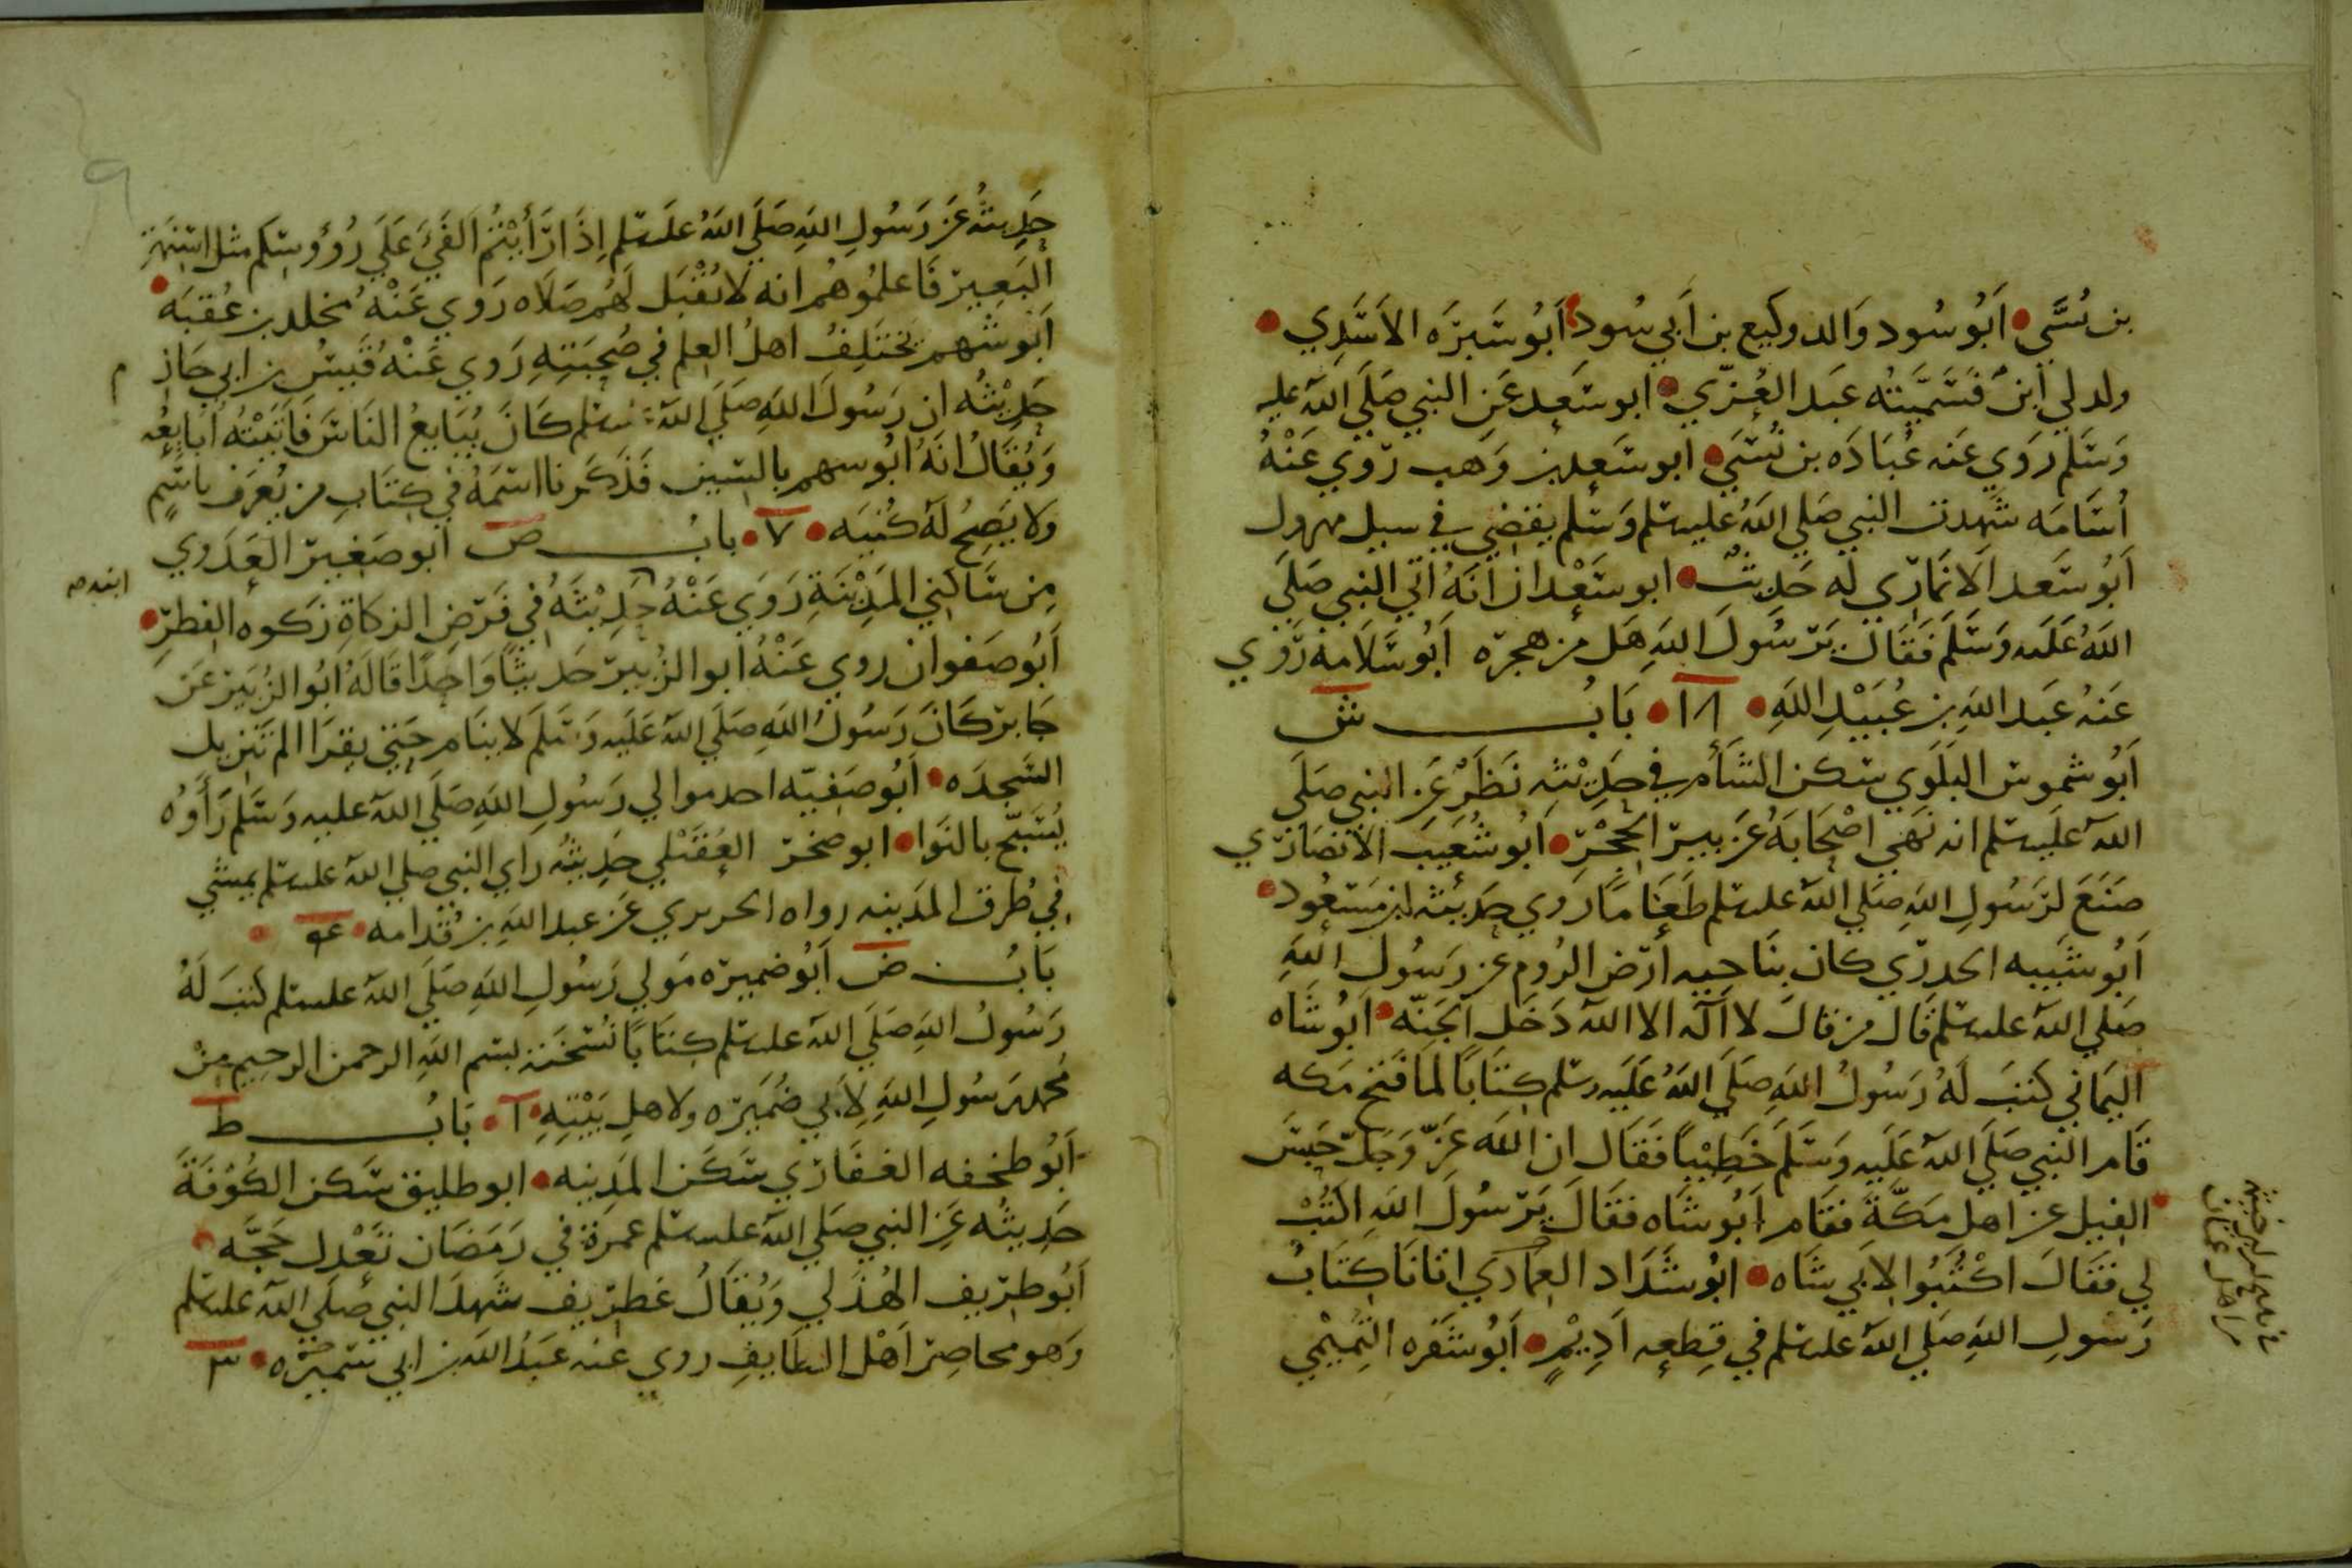 بن نُسَّي • اَبُو سُود وَالد وكيع بن اَبي سُود • اَبُو سَبرَه الاَسَدِي •
ولد لي اَبنٌ فَسَمَّيتُه عَبد العُزّي • ابو سَعِد عَنِ النبي صَلَي اللهُ عليه
وَسَلم رَوَي عَنه عُبَادَه بن نُسَي • ابو سَعِد بن وَهب رَوي عَنْهُ
اُسَامَه شَهدت النبي صَلي اللهُ عليه سلم وَسَلم يقضي في سيل مهرول
اَبُو سَعد الاَنمَارَي لَه حَدِيثٌ • ابو سَعْدان اَنَهُ اَتَي النبي صَلَي
اللهُ عَلَيه وَسَلَم فَقَال يَرَسُولَ اللهِ هَل من هجره اَبُو سَلَامه رَوَي
عَنهُ عَبد اللهِ بن عُبَيْدِ اللهِ • ١٨ • بَابُ ش
اَبُو شموس البلَوي سَكن الشَأم في حَدِيْثِه نَظَرٌ عَنِ النبي صَلَي
اللهُ عَلَيه سلم انه نَهَي اصْحَابَهُ عَن بير الحِجْرِ • اَبُو شُعَيب الاَنصَارَي
صَنَعَ لرَسُولِ اللهِ صَلي اللهُ عليه سلم طَعَامًا رَوي حَدِيثه ابن مَسعُود •
اَبُو شَيبه الحدرَي كان بنَاحيه اَرَض الرُوم عن رسُولَ اللهِ
صَلي اللهُ عليه سلم قَال من قالَ لا اَلَه الا اللهُ دَخَل الجَنّه • اَبُو شَاه
اليَمَاني كتبَ لَهُ رَسُولُ اللهِ صَلَي اللهُ عَلَيه وسلم كِتَابًا لمَا فَتح مَكه
قَام النبي صَلَي اللهُ عَلَيه وَسَلَم خَطِيْبًا فَقَال ان اللهَ عَزّ وَجَلّ حَبسَ
الفيل عن اهل مَكّةَ فقَام اَبُو شَاه فقَالَ يَرَسُولَ اللهِ اكتُبْ
لي فقَالَ اكْتُبُوا لاَبي شَاه • ابُو شَدَاد العمادي اتانَا كِتَابُ
رَسُولِ اللهِ صَلَي اللهُ عليه سلم في قِطعِه اَدِيْمٍ • اَبُو شَقَره التَمِيْمي
٩
حَدِيثُهُ عَن رَسُولِ اللهِ صَلَي اللهُ عليه سلم اِذَا رَأيْتُمُ الفَيَّ عَلَي رُؤوسِكم مثل اسنمَةِ
البَعِيرِ فَاعلمُوهُم انه لا تُقْبَل لَهُم صَلاَه رَوي عَنْهُ مخلد بن عُقبَه •
اَبو شهم يختَلِفُ اهلُ العِلم في صُحبَتِهِ رَوي عَنْهُ قَيسُ بن ابي حَازِم
حَدِيْثُه ان رَسُولَ اللهِ صَلَي اللهُ عليه سلم كَانَ يُبَايعُ النَاسَ فَاَتَيْتُهُ اُبَايعُه
وَيُقَالُ انَهُ ابُو سهم بالسين قَد ذَكَرنا اسمَهُ في كِتَابِ من يُعرَف باسمِ
ولا يَصِحُ لَهُ كُنيَه • ٧ • بابُ ص اَبو صَغير العَدَوي
مِن سَاكني المَدِيْنَةِ رَوَي عَنْهُ حَدِيْثَهُ في فَرَض الزكاةِ زَكَوه الفطرِ •
ابنه صه
اَبُو صَفوان روي عَنْهُ ابو الزُبير حَديثًا وَاحِدًا قَالَهُ ابُو الزُبَير عَن
جَابر كَانَ رَسُولُ اللهِ صَلَي اللهُ عَلَيه وَسَلَم لا ينَام حَتي يقرَا الم تَنزيل
السَجدَه • اَبُو صَفيّه احد موالي رَسُولِ اللهِ صَلَي اللهُ عليه وَسَلم رَأَوْهُ
يُسَبّح بالنَوا • ابو صَخر العُقَيْلي حَدِيثُهُ راي النبي صلي اللهُ عليه سلم يمشي
في طُرق المَدينه رواه الحريري عَن عبد اللهِ بن قُدامه •
بَابُ ض اَبُو ضميرَه مَولي رَسُولِ اللهِ صَلَي اللهُ عليه سلم كتب لَهُ
رَسُولُ اللهِ صَلَي اللهُ عليه سلم كِتَابًا نُسخَته بسم اللهِ الرحمن الرحيم مِنْ
مُحمد رَسُولِ اللهِ لِاَبي ضُمَيرَه ولاهلِ بَيْتِهِ • ١ • بَابُ ط
اَبُو طخفه الغفَارَي سَكَن المَدِينه • ابو طليق سَكن الكُوُفَةَ
حَدِيثُه عَنِ النبي صَلَي اللهُ عليه سلم عمرَة في رَمَضَان تَعْدِل حَجَّه •
اَبُو طريف الهُذَلي وَيُقَالُ غطرَيف شَهدَ النبي صَلَي اللهُ عليه سلم
وَهو محَاصِر اَهْل الطَايفِ روي عَنه عَبدُ اللهِ بن ابي سَميرَه • ٣